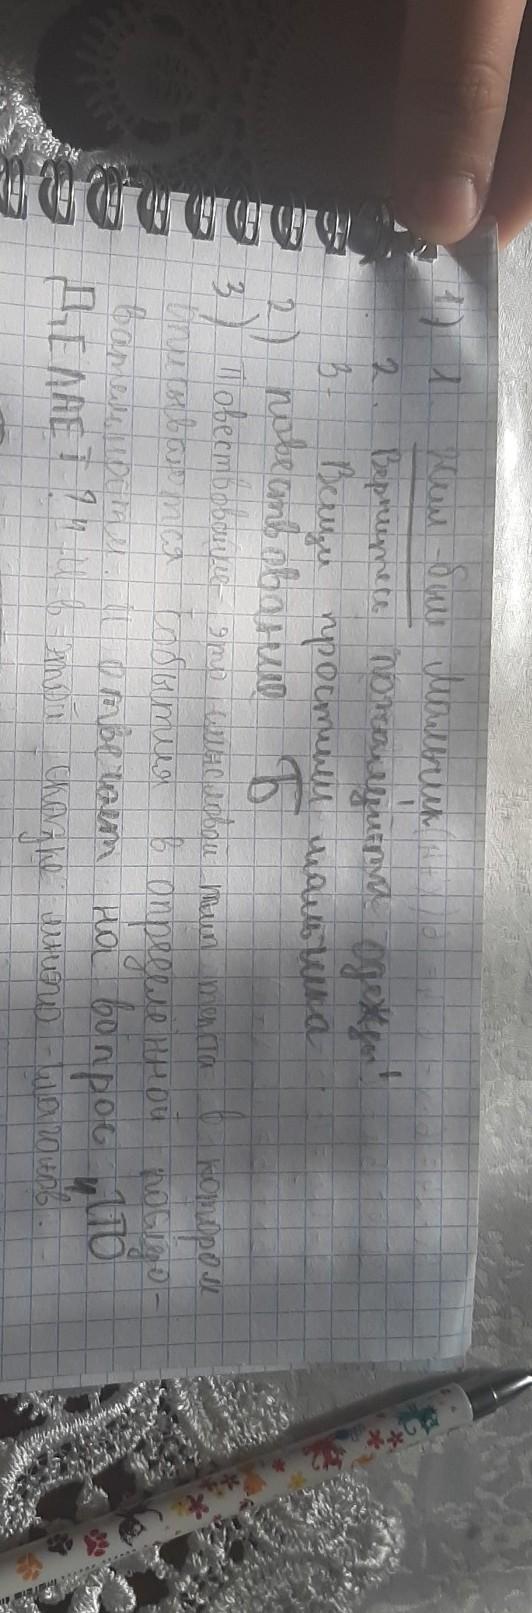 1) 1. Жил-был мальчик
2. Вернитесь пожалуйста одежды!
3. Вещи простили мальчика
2) повествование Т
3) Повествование - это смысловой тип текста в котором
описываются события в определённой последо-
вательности. И отвечает на вопрос „ЧТО
ДЕЛАЕТ?". И в этой сказке много глаголов.